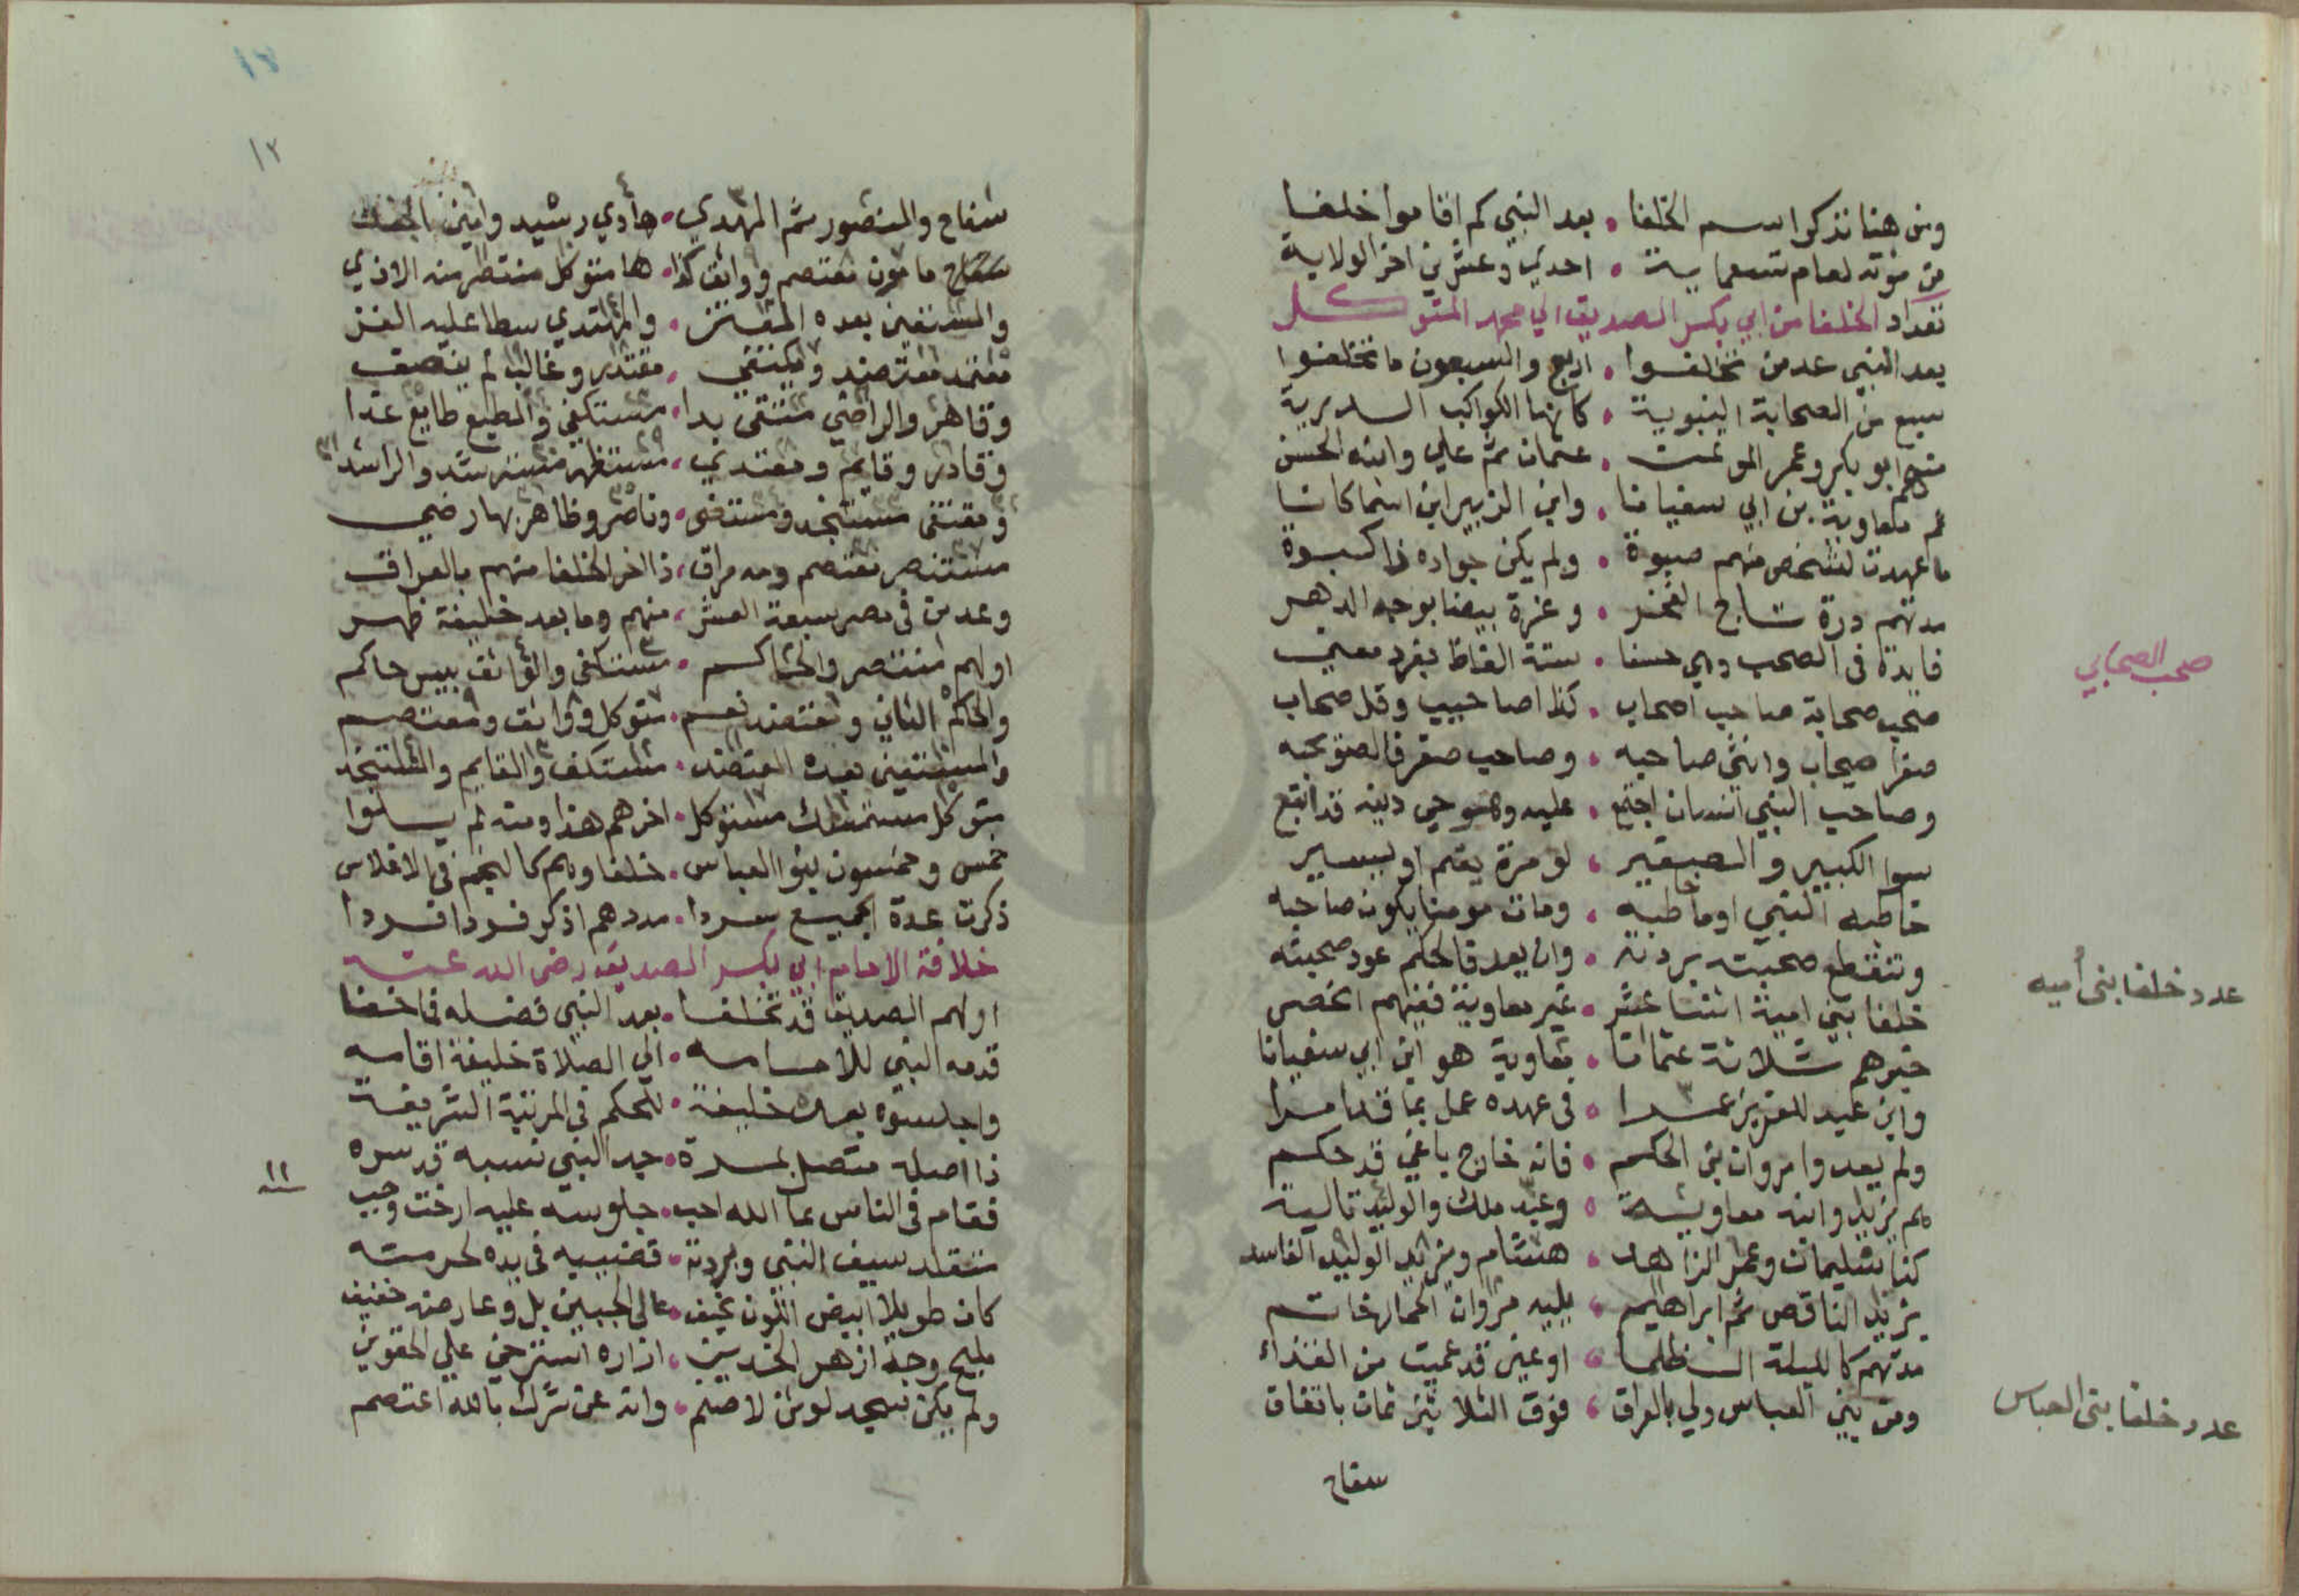 ومن هنا نذكر اسم الخلفا • بعد النبي كم اقاموا خلفا
من موته لعام تسعماية • احدي وعشرين اخر الولاية
تعداد الخلفا من ابي بكر الصديق الي محمد المتوكل
بعد النبي عد من تخلفوا • اربع والسبعون ما تخلفوا
سبع من الصحابة النبوية • كانها الكواكب الدرية
منهم ابو بكر وعمر الموتمن • عثمان ثم علي وابنه الحسن
ثم معاوية بن ابي سفيانا • وابن الزبير ابن اسما كانا
ما عهدت لشخص منهم صبوة • ولم يكن جواده ذا كبوة
مدتهم درة تاج الفخر • وغرة بيضا بوجه الدهر
فايدة في الصحب وهي حسنا • ستة الفاظ بفرد معني
صحب صحابة صاحب اصحاب • كذا اصاحيب وقل صحاب
صغرا صيحاب وانثي صاحبه • وصاحب صغر فالصويحبه
وصاحب النبي انسان اجتمع • عليه وهو حي دينه قد اتبع
سوا الكبير والصغير • لو مرة يقم او يسير
خاطبه النبي او ما طبه • ومات مومنا يكون صاحبه
وتنقطع صحبته بردته • وان يعد فالحكم عود صحبته
خلفا بني امية اثنتا عشر • غير معاوية ففيهم انحصر
خيرهم ثلاثة عثمانا • معاوية هو ابن ابي سفيانا
وابن عبد العزيز عمرا • في عهده عمل بما قد امرا
ولم يعدوا مروان بن الحكم • فانه خارج باغي قد حكم
هم يزيد وابنه معاوية • وعبد ملك والوليد تاليه
كذا سليمان وعمر الزاهد • هشام ويزيد الوليد الفاسد
يزيد الناقص ثم ابراهيم • يليه مروان الحمار خاتم
مدتهم كالليلة الظلما • او عين قد عميت من القذاء
ومن بني العباس ولي بالعراق • فوق الثلاثين ثمان باتفاق
سفاح
صحب الصحابي
عدد خلفا بنى أميه
عدد خلفا بنى العباس
١٢
سفاح والمنصور ثم المهدي • هادي رشيد وامين
مامون معتصم وواثق كذا • ها متوكل منتصر منه الاذي
والمستعين بعده المعتز • والمهتدي سطا عليه الغز
معتمد معتضد ومكتفي • مقتدر وغالب لم ينصف
وقاهر والراضي متقي بدا • مستكفي والمطيع طايع غدا
وقادر وقايم ومقتدي • مستظهر مسترشد والراشد
ومقتفي مستنجد ومستضي • وناصر وظاهر بها رضي
مستنصر معتصم ومه مراق • ذا اخر الخلفا منهم بالعراق
وعد من في مصر سبعة العشر • منهم وما بعد خليفة ظهر
اولهم منتصر والحاكم • مستكفي والواثق بيبس حاكم
والحاكم الثاني ومعتضد نعم • متوكل وواثق ومعتصم
والمستعين بعده المعتضد • مستكف والقايم والمستنجد
متوكل مستمسك متوكل • اخرهم هذا ومنه لم يسلوا
خمس وخمسون بنوا العباس • خلفا وهم كالنجم في الاغلاس
ذكرت عدة الجميع سردا • مددهم اذكر فردا فردا
خلافة الامام ابي بكر الصديق رضي الله عنه
اولهم الصديق قد تخلفا • بعد النبي فضله فما خفا
قدمه النبي للامامه • الي الصلاة خليفة اقامه
واجلسوه بعده خليفة • للحكم في المرتبة الشريفة
ذا اصله متصل بمرة • جد النبي نسبه قد سره
فقام في الناس بما الله احب • جلوسه عليه ارخت وجب
تقلد سيف النبي وبردته • قضيبه في يده لحرمته
كان طويلا ابيض اللون نحيف • عالي الجبين بل وعارضه خفيف
مليح وجه ازهر الخدين • ازاره استرخي علي الحقوين
ولم يكن سجد لوثن لا صنم • وانه عن شرك بالله اعتصم
١١
سنه